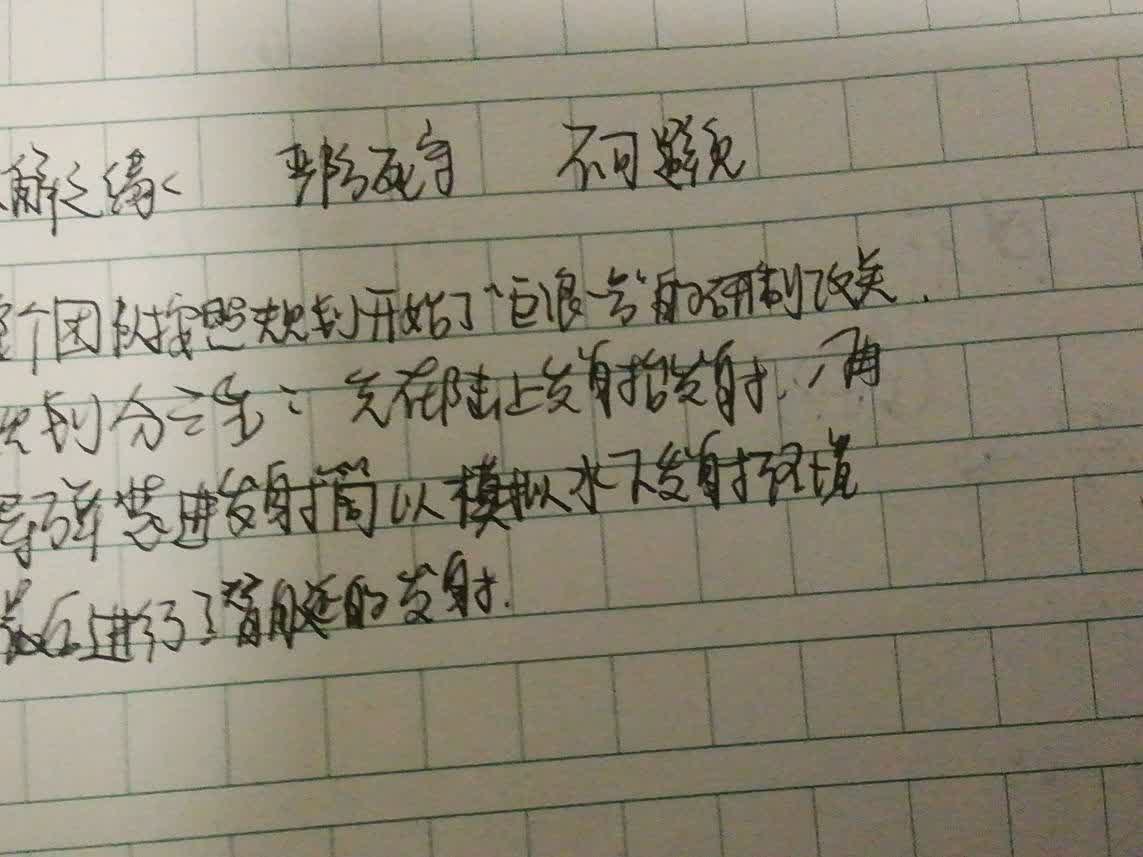 解之缘 严防死守 不可避免
个团队按照规划开始了"巨浪一号"的研制攻关.
划分三步:先在陆上发射台发射,再
导弹装进发射筒以模拟水下发射环境
最后进行了潜艇的发射.